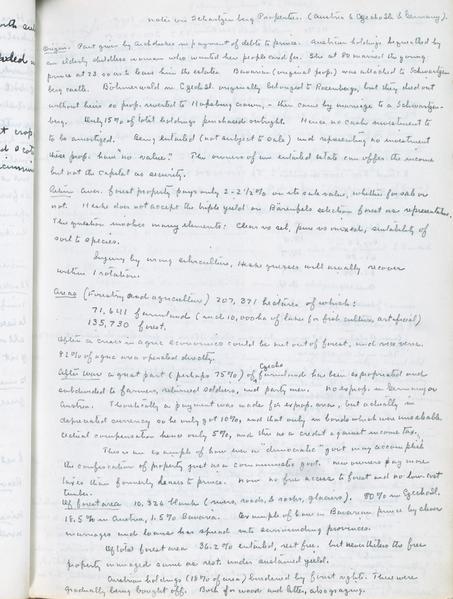 notes on Schartzenberg Properties. (Austria & Czechosl. & Germany).
Origin. Part given by Archdukes in payment of debts to prince. Austrian holdings bequeathed by
an elderly childless woman who wanted her people cared for. She at 80 married the young
prince at 23 so as to leave him the estates. Bavarian (original prop.) was attached to Schwartzen-
berg castle. Böhmerwald in Czechosl. originally belonged to Rosenbergs, but they died out
without heirs so prop. reverted to Hapsburg crown, - then came by marriage to a Schwartzen-
berg. Only 15% of total holdings purchased outright. Hence no cash investment to
to be amortized. Being entailed (not subject to sale) and representing no investment
these prop. have "no value". - The owners of an entailed estate can offer the income
but not the capital as security.
Aver. forest property pays only 2-2½% on its sale value, whether for sale or
not. Heske does not accept the triple yield on Bärenfels selection forest as representative.
The question involves many elements: Clear vs sel., pure vs mixed, suitability of
soil to species.
Injury by wrong silviculture, Heske guesses will usually recover
within 1 rotation.
Areas (Forestry and agriculture) 207,371 hectares of which:
71,641 farmlands (incl 10,000 ha of lakes for fish culture, artificial)
135,730 forest.
After a crisis in agric economics could be met out of forest, and vice versa.
82% of agric area operated directly.
After war a great part (perhaps 75%) of Czecho farmlands has been expropriated and
subdivided to farmers, returned soldiers, and party men. No exprop. in Germany or
Austria. Theoretically a payment was made for exprop. areas, but actually in
depreciated currency so he only got 10%, and that only in bonds which were unsalable
Actual compensation hence only 5%, and this as a credit against income tax.
This is an example of how even a "democratic" govt may accomplish
the confiscation of property just as a communistic govt. New owners pay more
taxes than formerly leases to prince. Now no free access to forest and no low-cost
timber.
Of forest area 10,326 blanks (rivers, roads, & rocks, glaciers). 80% in Czechosl.,
18.5% in Austria, 1.5% Bavaria. Example of how a Bavarian prince by clever
marriages and loans has spread into surrounding provinces.
Of total forest area 36.2% entailed, rest free. but nevertheless the free
property managed same as rest under sustained yield.
Austrian holdings (18% of area) burdened by forest rights. These were
gradually being bought off. Both for wood and litter, also grazing.